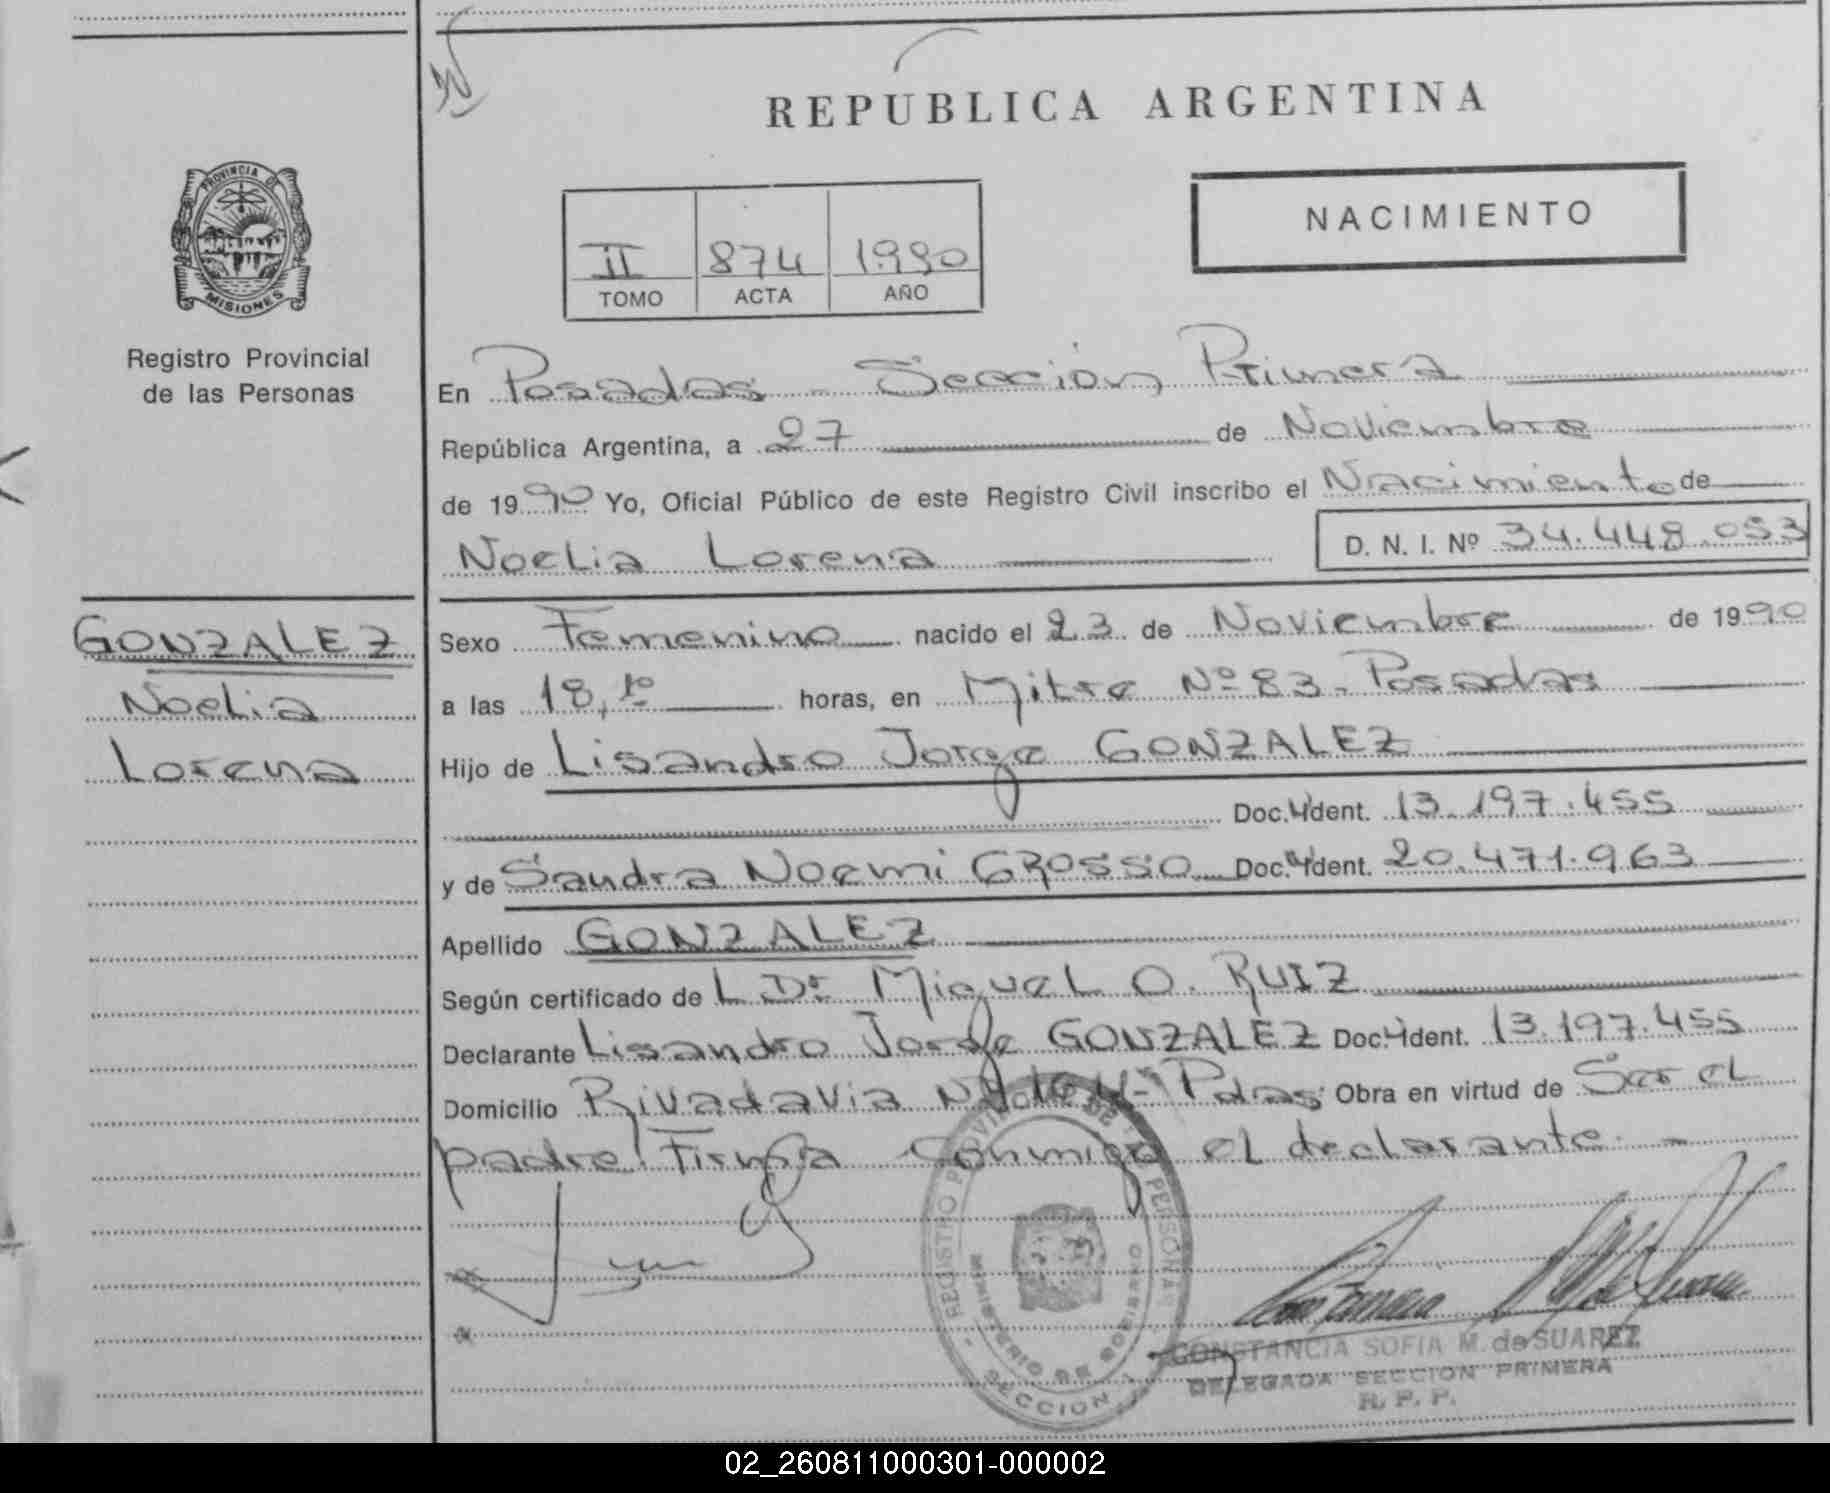 REPUBLICA ARGENTINA
PROVINCIA DE
MISIONES
Registro Provincial
de las Personas
NACIMIENTO
II 874 1990
TOMO ACTA AÑO
En Posadas - Sección Primera
República Argentina, a 27 de Noviembre
de 1990 Yo, Oficial Público de este Registro Civil inscribo el Nacimiento de
Noelia Lorena D. N. I. Nº 34.448.053
GONZALEZ
Noelia
Lorena
Sexo Femenino nacido el 23 de Noviembre de 1990
a las 18,10 horas, en Mitre Nº 83 - Posadas
Hijo de Lisandro Jorge GONZALEZ
Doc. Ident. 13.197.455
y de Sandra Noemi GROSSO Doc. Ident. 20.471.963
Apellido GONZALEZ
Según certificado de L Dr Miguel O. RUIZ
Declarante Lisandro Jorge GONZALEZ Doc. Ident. 13.197.455
Domicilio Rivadavia Pdas. Obra en virtud de Ser el
padre. Firma conmigo el declarante. -
REGISTRO PROVINCIAL DE LAS PERSONAS
MINISTERIO DE GOBIERNO
SECCION 1
CONSTANCIA SOFIA M. de SUAREZ
DELEGADA SECCION PRIMERA
R. P. P.
02_260811000301-000002